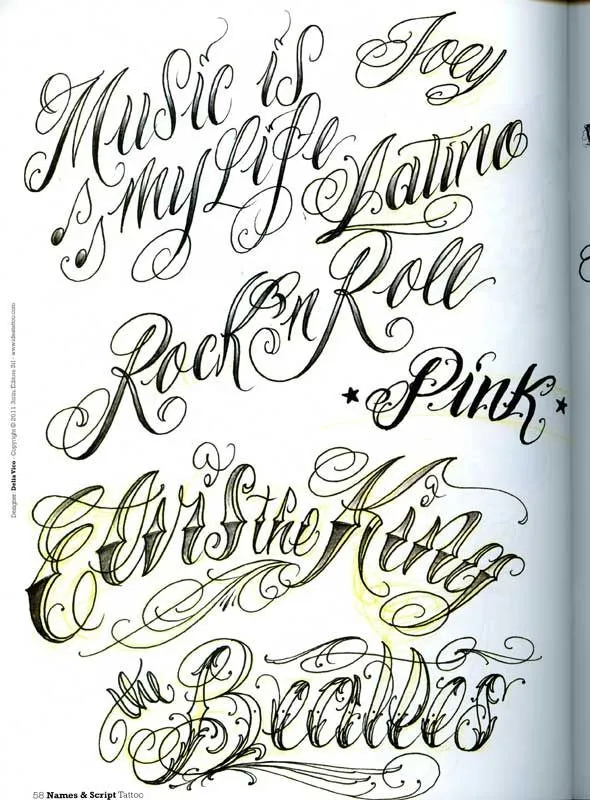 Music is
my Life
Joey
Latino
Rock'n Roll
Pink
Elvis the King
the Beatles
58 Names & Script Tattoo
Designer: Delia Vico - Copyright © 2011